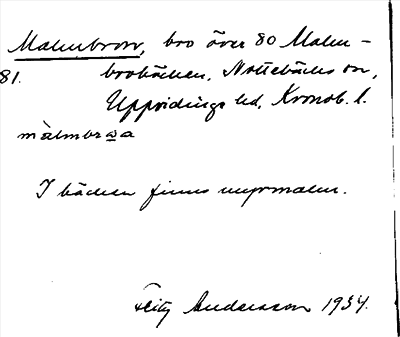 Malmbron, bro över 80 Malm-
81. brobäcken, Nottebäcks sn,
Uppvidinge hd, Kronob. l.
màlmbrωa
I bäcken finns myrmalm.
Andersson 1934.